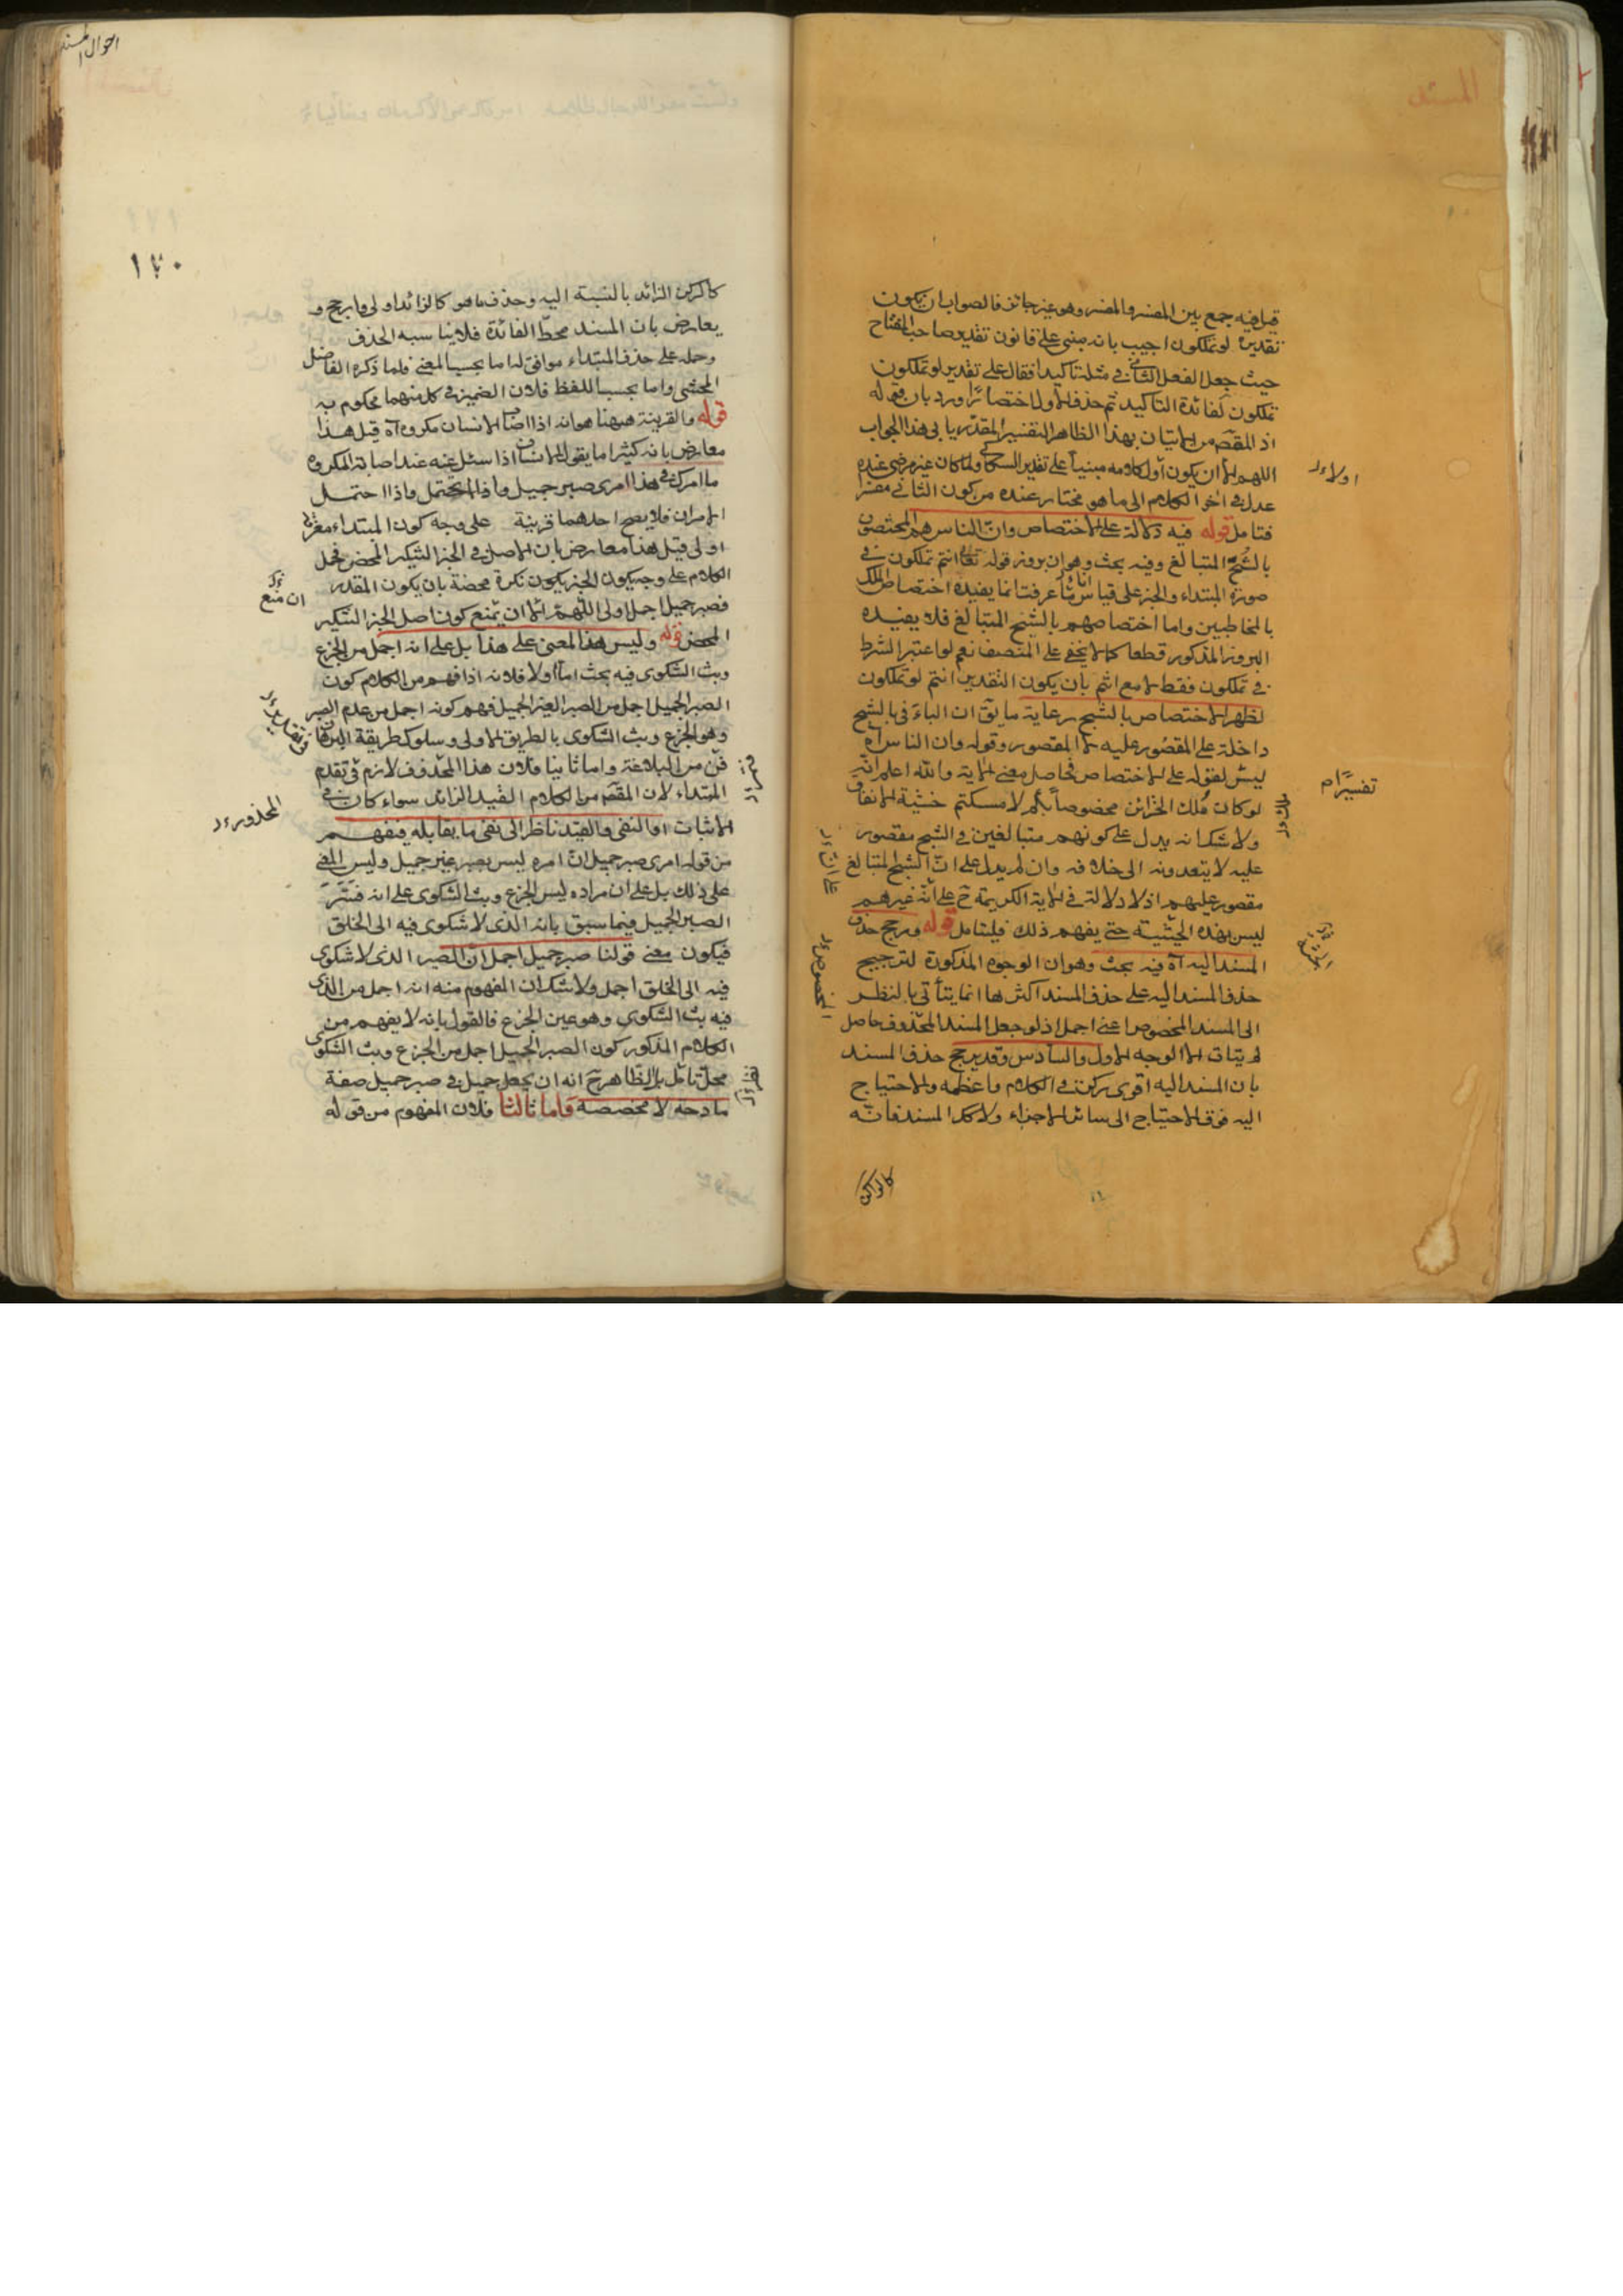 المسند
قيل فيه جمع بين المفسر والمفسر وهو غير جائز فالصواب ان يكون
تقديره لو تملكون اجيب بانه مبنى على قانون تقدير صاحب المفتاح
حيث جعل الفعل الثانى فى مثله تاكيدا فقال على تقدير لو تملكون
تملكون لفائدة التاكيد ثم حذف الاول اختصارا ورد بان قوله
اذ المقصم من الاتيان بهذا الظاهر التفسير المقدر يابى هذا الجواب
اللهم الا ان يكون اول كلامه مبنيا على تقدير السكاكى ولما كان غير مرضى عنده
عدل فى اخر الكلام الى ما هو مختار عنده من كون الثانى مفسر
فتامل قوله فيه دلالة على الاختصاص وان الناس هم المختصون
بالشح المتبالغ وفيه بحث وهو ان بروز قوله تعالى انتم تملكون فى
صورة المبتداء والخبر على قياس انا عرفت انما يفيده اختصاص الملك
بالمخاطبين واما اختصاصهم بالشح المتبالغ فلا يفيده
البروز المذكور قطعا كما لا يخفى على المنصف نعم لو اعتبر الشرط
فى تملكون فقط لا مع انتم بان يكون التقدير انتم لو تملكون
لظهر الاختصاص بالشح رعاية ما يق ان الباء فى بالشح
داخلة على المقصور عليه لا المقصور وقوله وان الناس آه
ليس لقوله على الاختصاص فحاصل معنى الاية والله اعلم انه
لو كان ملك الخزائن مخصوصا بكم لامسكتم خشية الانفاق
ولا شك انه يدل على كونهم متبالغين فى الشح مقصور
عليه لا يتعدونه الى خلافه وان لم يدل على ان الشح المتبالغ
مقصور عليهم اذ لا دلالة فى الاية الكريمة ح على انه غيرهم
ليس بهذه الحيثية حتى يفهم ذلك فليتامل قوله ورجح حذف
المسند اليه آه فيه بحث وهو ان الوجوه المذكورة لترجيح
حذف المسند اليه على حذف المسند اكثرها انما يتأتى بالنظر
الى المسند المخصوص اعنى اجمل اذ لو جعل المسند المحذوف حاصل
لم يتات الا الوجه الاول والسادس وقد يرجح حذف المسند
بان المسند اليه اقوى ركن فى الكلام واعظمه والاحتياج
اليه فوق الاحتياج الى سائر الاجزاء ولا كذا المسند فانه
كالركن
اولا
تفسيرا م
المخصوص
احوال المسند
١٧٠
كالركن الزائد بالنسبة اليه وحذف ما هو كالزائد اولى وارجح و
يعارض بان المسند محط الفائدة فلا يناسبه الحذف
وحمله على حذف المبتداء موافق له اما بحسب المعنى فلما ذكره الفاضل
المحشى واما بحسب اللفظ فلان الضمير فى كل منهما محكوم به
قوله والقرينة ههنا هو انه اذا اصاب الانسان مكروه آه قيل هذا
معارض بانه كثيرا ما يقول الانسان اذا سئل عنه عند اصابة المكروه
ما امرك فى هذا امرى صبر جميل واذا احتمل
الامران فلا يصح احدهما قرينة على وجه كون المبتداء معرفة
اولى قيل هذا معارض بان الاصل فى الخبر التنكير المحض فحمل
الكلام على وجه يكون الخبر يكون نكرة محضة بان يكون المقدر
فصبر جميل اجمل اولى اللهم الا ان يمنع كون اصل الخبر التنكير
المحض قوله وليس هذا المعنى على هذا بل على انه اجمل من الجزع
وبث الشكوى فيه بحث اما اولا فلانه اذا فهم من الكلام كون
الصبر الجميل اجمل من الصبر الغير الجميل فهم كونه اجمل من عدم الصبر
وهو الجزع وبث الشكوى بالطريق الاولى وسلوك طريقة البرهان
فن من البلاغة واما ثانيا فلان هذا المحذوف لازم فى تقدم
المبتداء لان المقصم من الكلام القيد الزائد سواء كان فى
الاثبات او النفى والقيد ناظر الى نفى ما يقابله فيفهم
من قوله امرى صبر جميل ان امره ليس بصبر غير جميل وليس المعنى
على ذلك بل على ان مراده ليس الجزع وبث الشكوى على انه فسر
الصبر الجميل فيما سبق بانه الذى لا شكوى فيه الى الخلق
فيكون معنى قولنا صبر جميل اجمل ان الصبر الذى لا شكوى
فيه الى الخلق اجمل ولا شك ان المفهوم منه انه اجمل من الذى
فيه بث الشكوى وهو عين الجزع فالقول بانه لا يفهم من
الكلام المذكور كون الصبر الجميل اجمل من الجزع وبث الشكوى
محل تامل بل الظاهر ح انه ان يجعل جميل فى صبر جميل صفة
مادحة لا مخصصة واما ثالثا فلان المفهوم من قوله
ان منع
المحذور